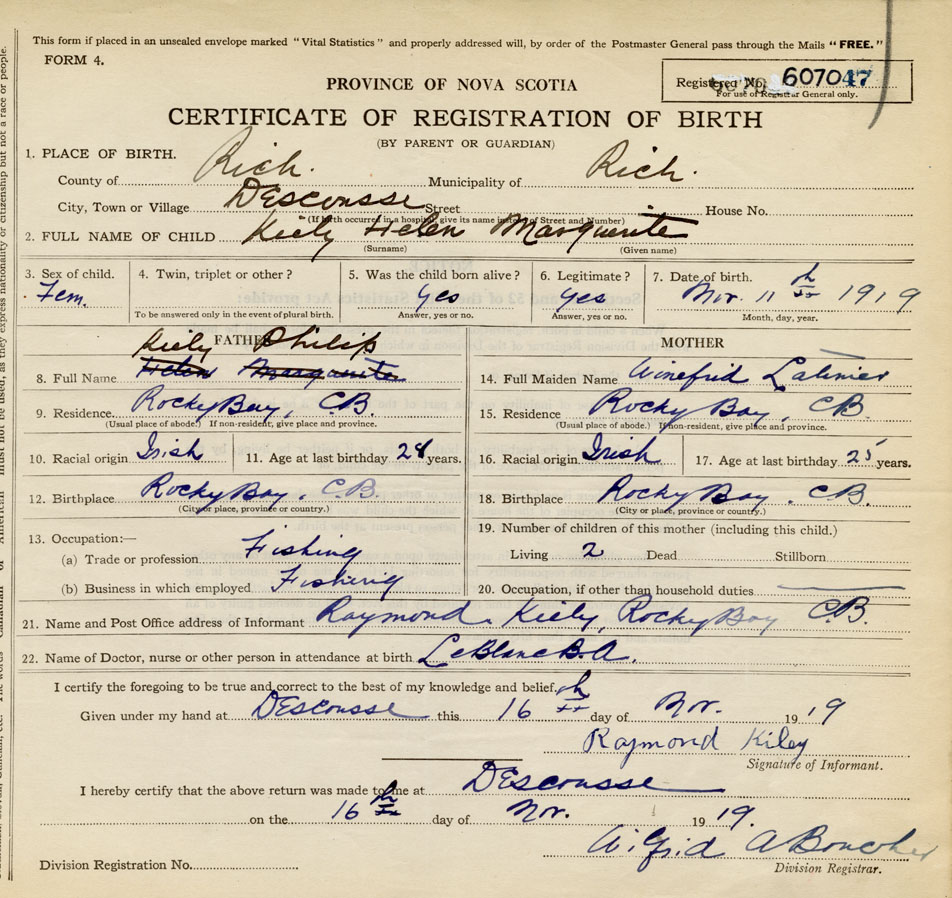 This form if placed in an unsealed envelope marked "Vital Statistics" and properly addressed will, by order of the Postmaster General pass through the Mails "FREE."
FORM 4.
Registered No. 607047
For use of Registrar General only.
PROVINCE OF NOVA SCOTIA
CERTIFICATE OF REGISTRATION OF BIRTH
(BY PARENT OR GUARDIAN)
1. PLACE OF BIRTH.
County of Rich. Municipality of Rich.
City, Town or Village DEscousse Street House No.
(If birth occurred in a hospital, give its name instead of Street and Number)
2. FULL NAME OF CHILD Kiely Helen Marguerite
(Surname) (Given name)
3. Sex of child. 4. Twin, triplet or other? 5. Was the child born alive? 6. Legitimate? 7. Date of birth.
Fem. Yes Yes Nov. 11th 1919
To be answered only in the event of plural birth. Answer, yes or no. Answer, yes or no. Month, day, year.
FATHER
Kiely Philip
8. Full Name Helen Marguerite
9. Residence. Rocky Bay, C.B.
(Usual place of abode.) If non-resident, give place and province.
10. Racial origin Irish 11. Age at last birthday 28 years.
12. Birthplace Rocky Bay. C.B.
(City or place, province or country.)
13. Occupation:—
(a) Trade or profession Fishing
(b) Business in which employed Fishing
MOTHER
14. Full Maiden Name Winefrid Latimer
15. Residence Rocky Bay, C.B.
(Usual place of abode.) If non-resident, give place and province.
16. Racial origin Irish 17. Age at last birthday 25 years.
18. Birthplace Rocky Bay. C.B.
(City or place, province or country.)
19. Number of children of this mother (including this child.)
Living 2 Dead Stillborn
20. Occupation, if other than household duties
21. Name and Post Office address of Informant Raymond Kiely, Rocky Bay C.B.
22. Name of Doctor, nurse or other person in attendance at birth LeBlanc B.A.
I certify the foregoing to be true and correct to the best of my knowledge and belief.
Given under my hand at DEscousse this 16th day of Nov. 1919
Raymond Kiley
Signature of Informant.
I hereby certify that the above return was made to me at DEscousse
on the 16th day of Nov. 1919.
A Boucher
Division Registrar.
Division Registration No.